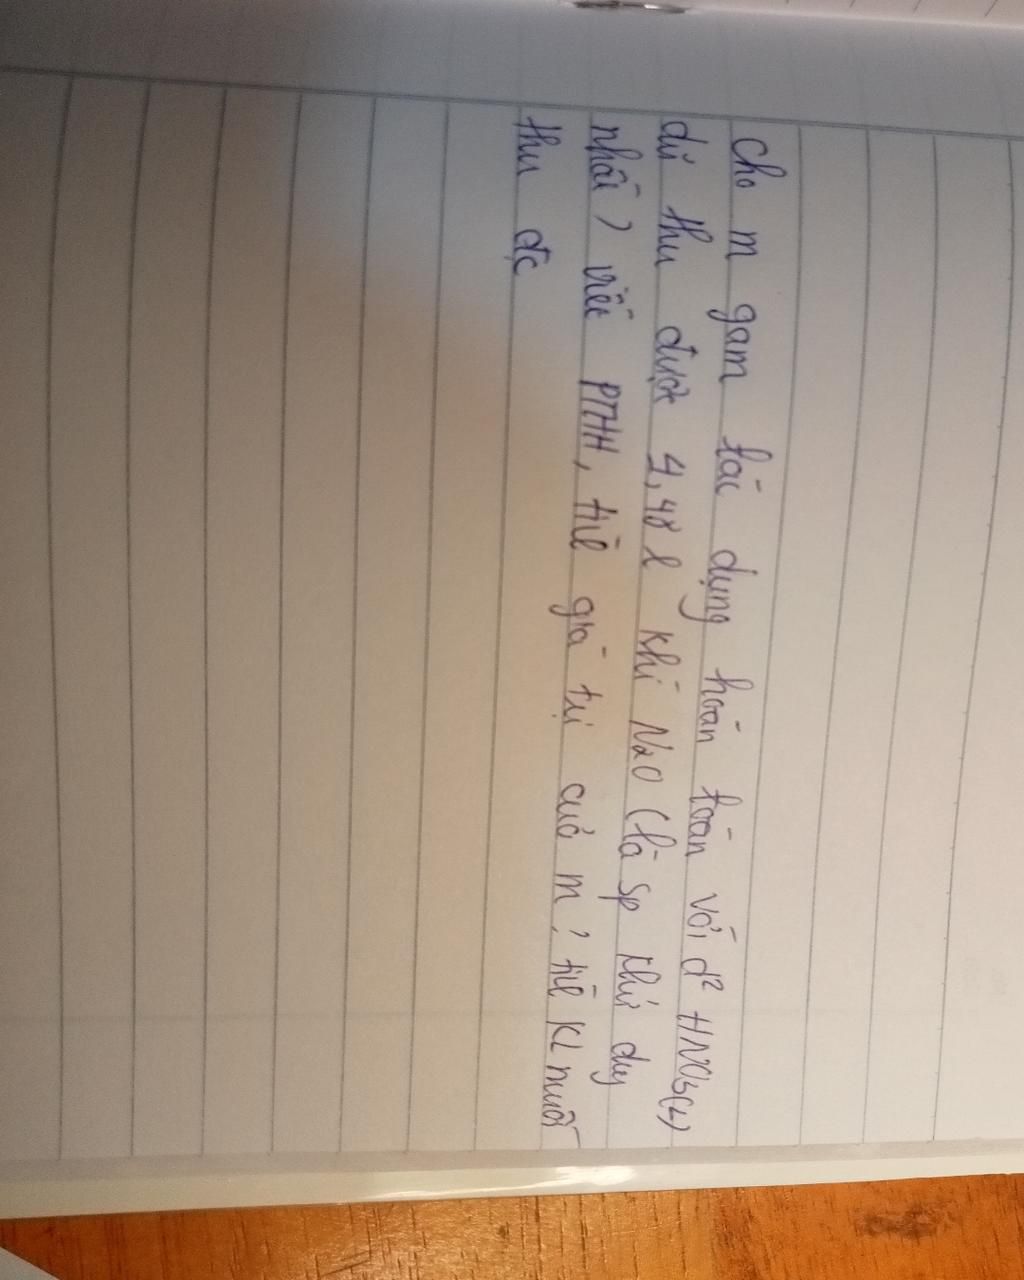 cho m gam tác dụng hoàn toàn với d² HNO3(L)
dư thu được 4,48 l khí N2O (là sp khử duy
nhất) viết PTHH, tíê giá trị của m, tíê KL muối
thu đc